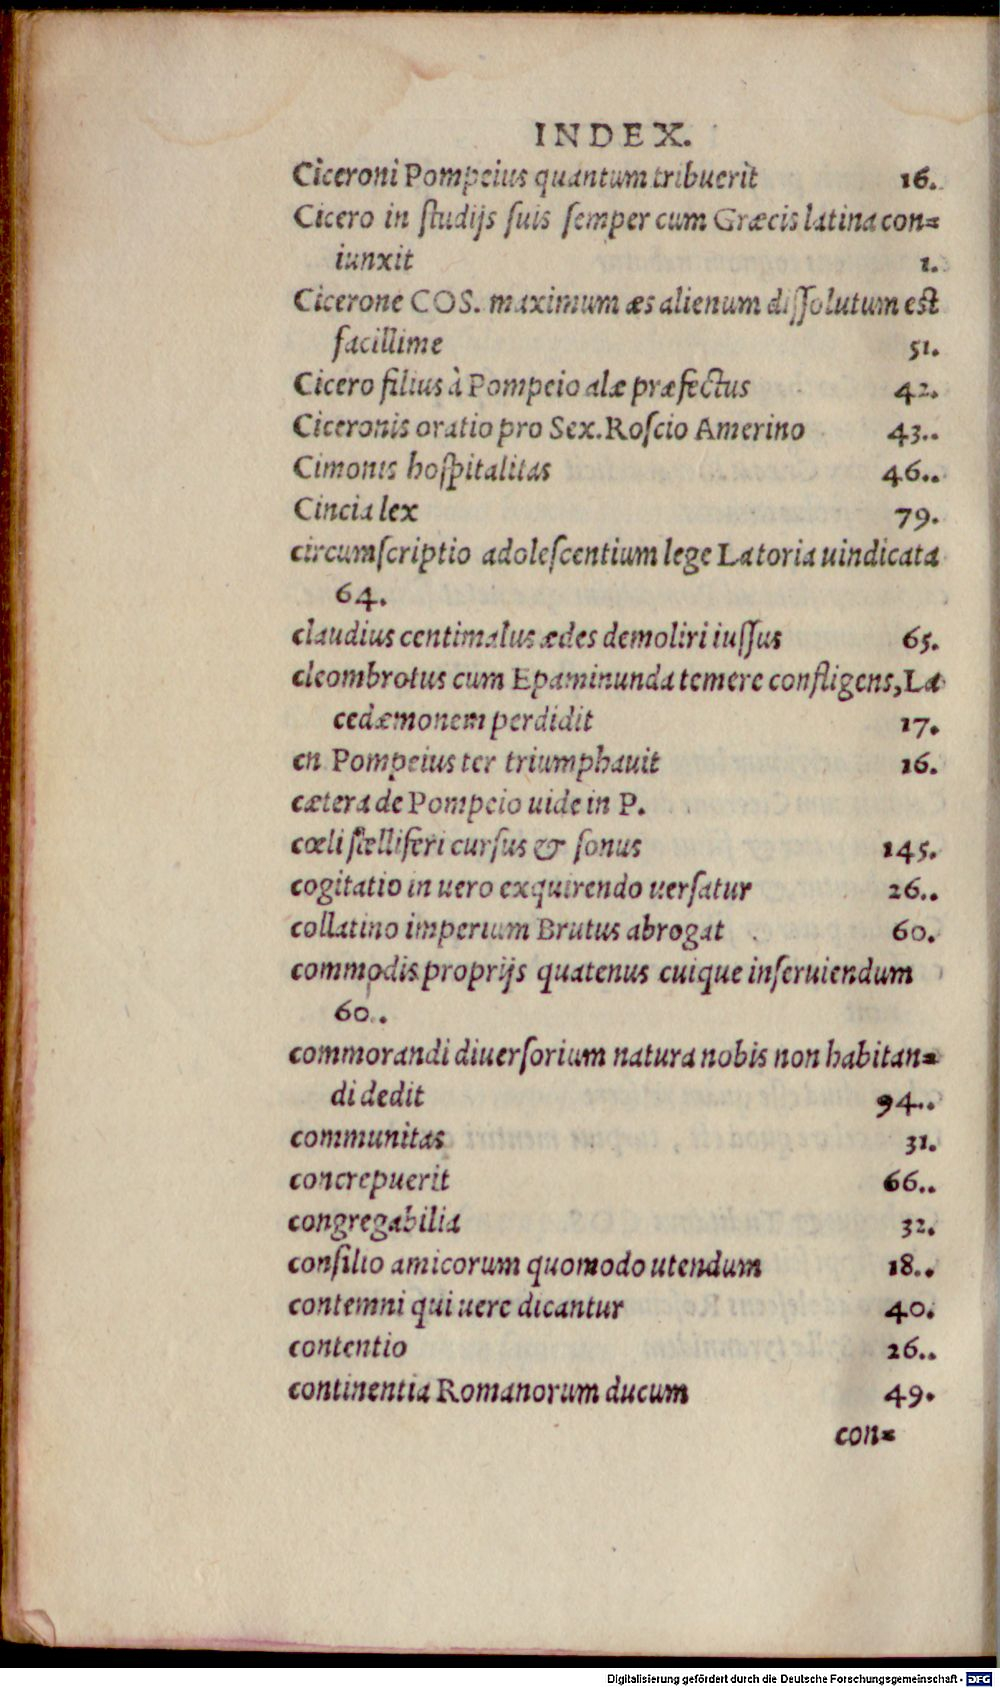 INDEX.
Ciceroni Pompeius quantum tribuerit 16.
Cicero in ſtudijs ſuis ſemper cum Græcis latina con=
iunxit 1.
Cicerone COS. maximum æs alienum diſſolutum est
facillime 51.
Cicero filius à Pompeio alæ præfectus 42.
Ciceronis oratio pro Sex. Roſcio Amerino 43..
Cimonis hoſpitalitas 46..
Cincia lex 79.
circumſcriptio adoleſcentium lege Latoria uindicata
64.
claudius centimalus ædes demoliri iuſſus 65.
cleombrotus cum Epaminunda temere confligens, La
cedæmonem perdidit 17.
cn Pompeius ter triumphauit 16.
cætera de Pompeio uide in P.
cœli ſtelliferi curſus & ſonus 145.
cogitatio in uero exquirendo uerſatur 26..
collatino imperium Brutus abrogat 60.
commodis proprijs quatenus cuique inſeruiendum
60..
commorandi diuerſorium natura nobis non habitan=
di dedit 94..
communitas 31.
concrepuerit 66..
congregabilia 32.
conſilio amicorum quomodo utendum 18..
contemni qui uere dicantur 40.
contentio 26..
continentia Romanorum ducum 49.
con=
Digitalisierung gefördert durch die Deutsche Forschungsgemeinschaft - DFG